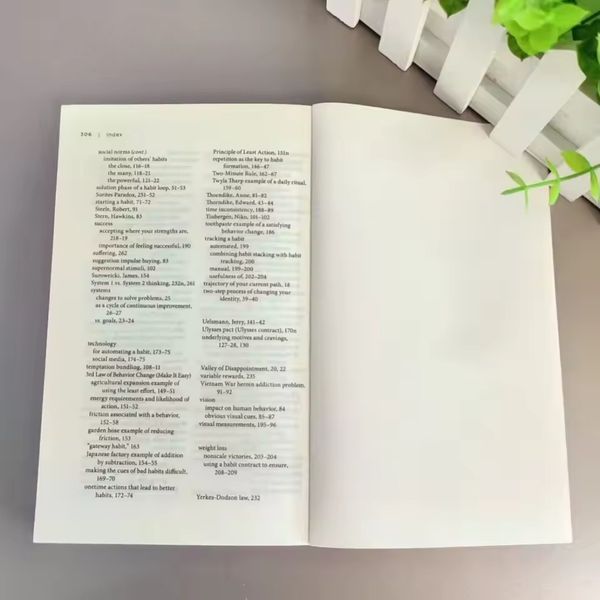 306 | Index
social norms (cont.)
imitation of others' habits
the close, 116–18
the many, 118–21
the powerful, 121–22
solution phase of a habit loop, 51–53
Sorites Paradox, 251–52
starting a habit, 71–72
Steele, Robert, 91
Stern, Hawkins, 83
success
accepting where your strengths are,
218–19
importance of feeling successful, 190
suffering, 262
suggestion impulse buying, 83
supernormal stimuli, 102
Suroweicki, James, 154
System 1 vs. System 2 thinking, 232n, 261
systems
changes to solve problems, 25
as a cycle of continuous improvement,
26–27
vs. goals, 23–24
technology
for automating a habit, 173–75
social media, 174–75
temptation bundling, 108–11
3rd Law of Behavior Change (Make It Easy)
agricultural expansion example of
using the least effort, 149–51
energy requirements and likelihood of
action, 151–52
friction associated with a behavior,
152–58
garden hose example of reducing
friction, 153
"gateway habit," 163
Japanese factory example of addition
by subtraction, 154–55
making the cues of bad habits difficult,
169–70
onetime actions that lead to better
habits, 172–74
Principle of Least Action, 151n
repetition as the key to habit
formation, 146–47
Two-Minute Rule, 162–67
Twyla Tharp example of a daily ritual,
159–60
Thorndike, Anne, 81–82
Thorndike, Edward, 43–44
time inconsistency, 188–89
Tinbergen, Niko, 101–102
toothpaste example of a satisfying
behavior change, 186
tracking a habit
automated, 199
combining habit stacking with habit
tracking, 200
manual, 199–200
usefulness of, 202–204
trajectory of your current path, 18
two-step process of changing your
identity, 39–40
Uelsmann, Jerry, 141–42
Ulysses pact (Ulysses contract), 170n
underlying motives and cravings,
127–28, 130
Valley of Disappointment, 20, 22
variable rewards, 235
Vietnam War heroin addiction problem,
91–92
vision
impact on human behavior, 84
obvious visual cues, 85–87
visual measurements, 195–96
weight loss
nonscale victories, 203–204
using a habit contract to ensure,
208–209
Yerkes-Dodson law, 232